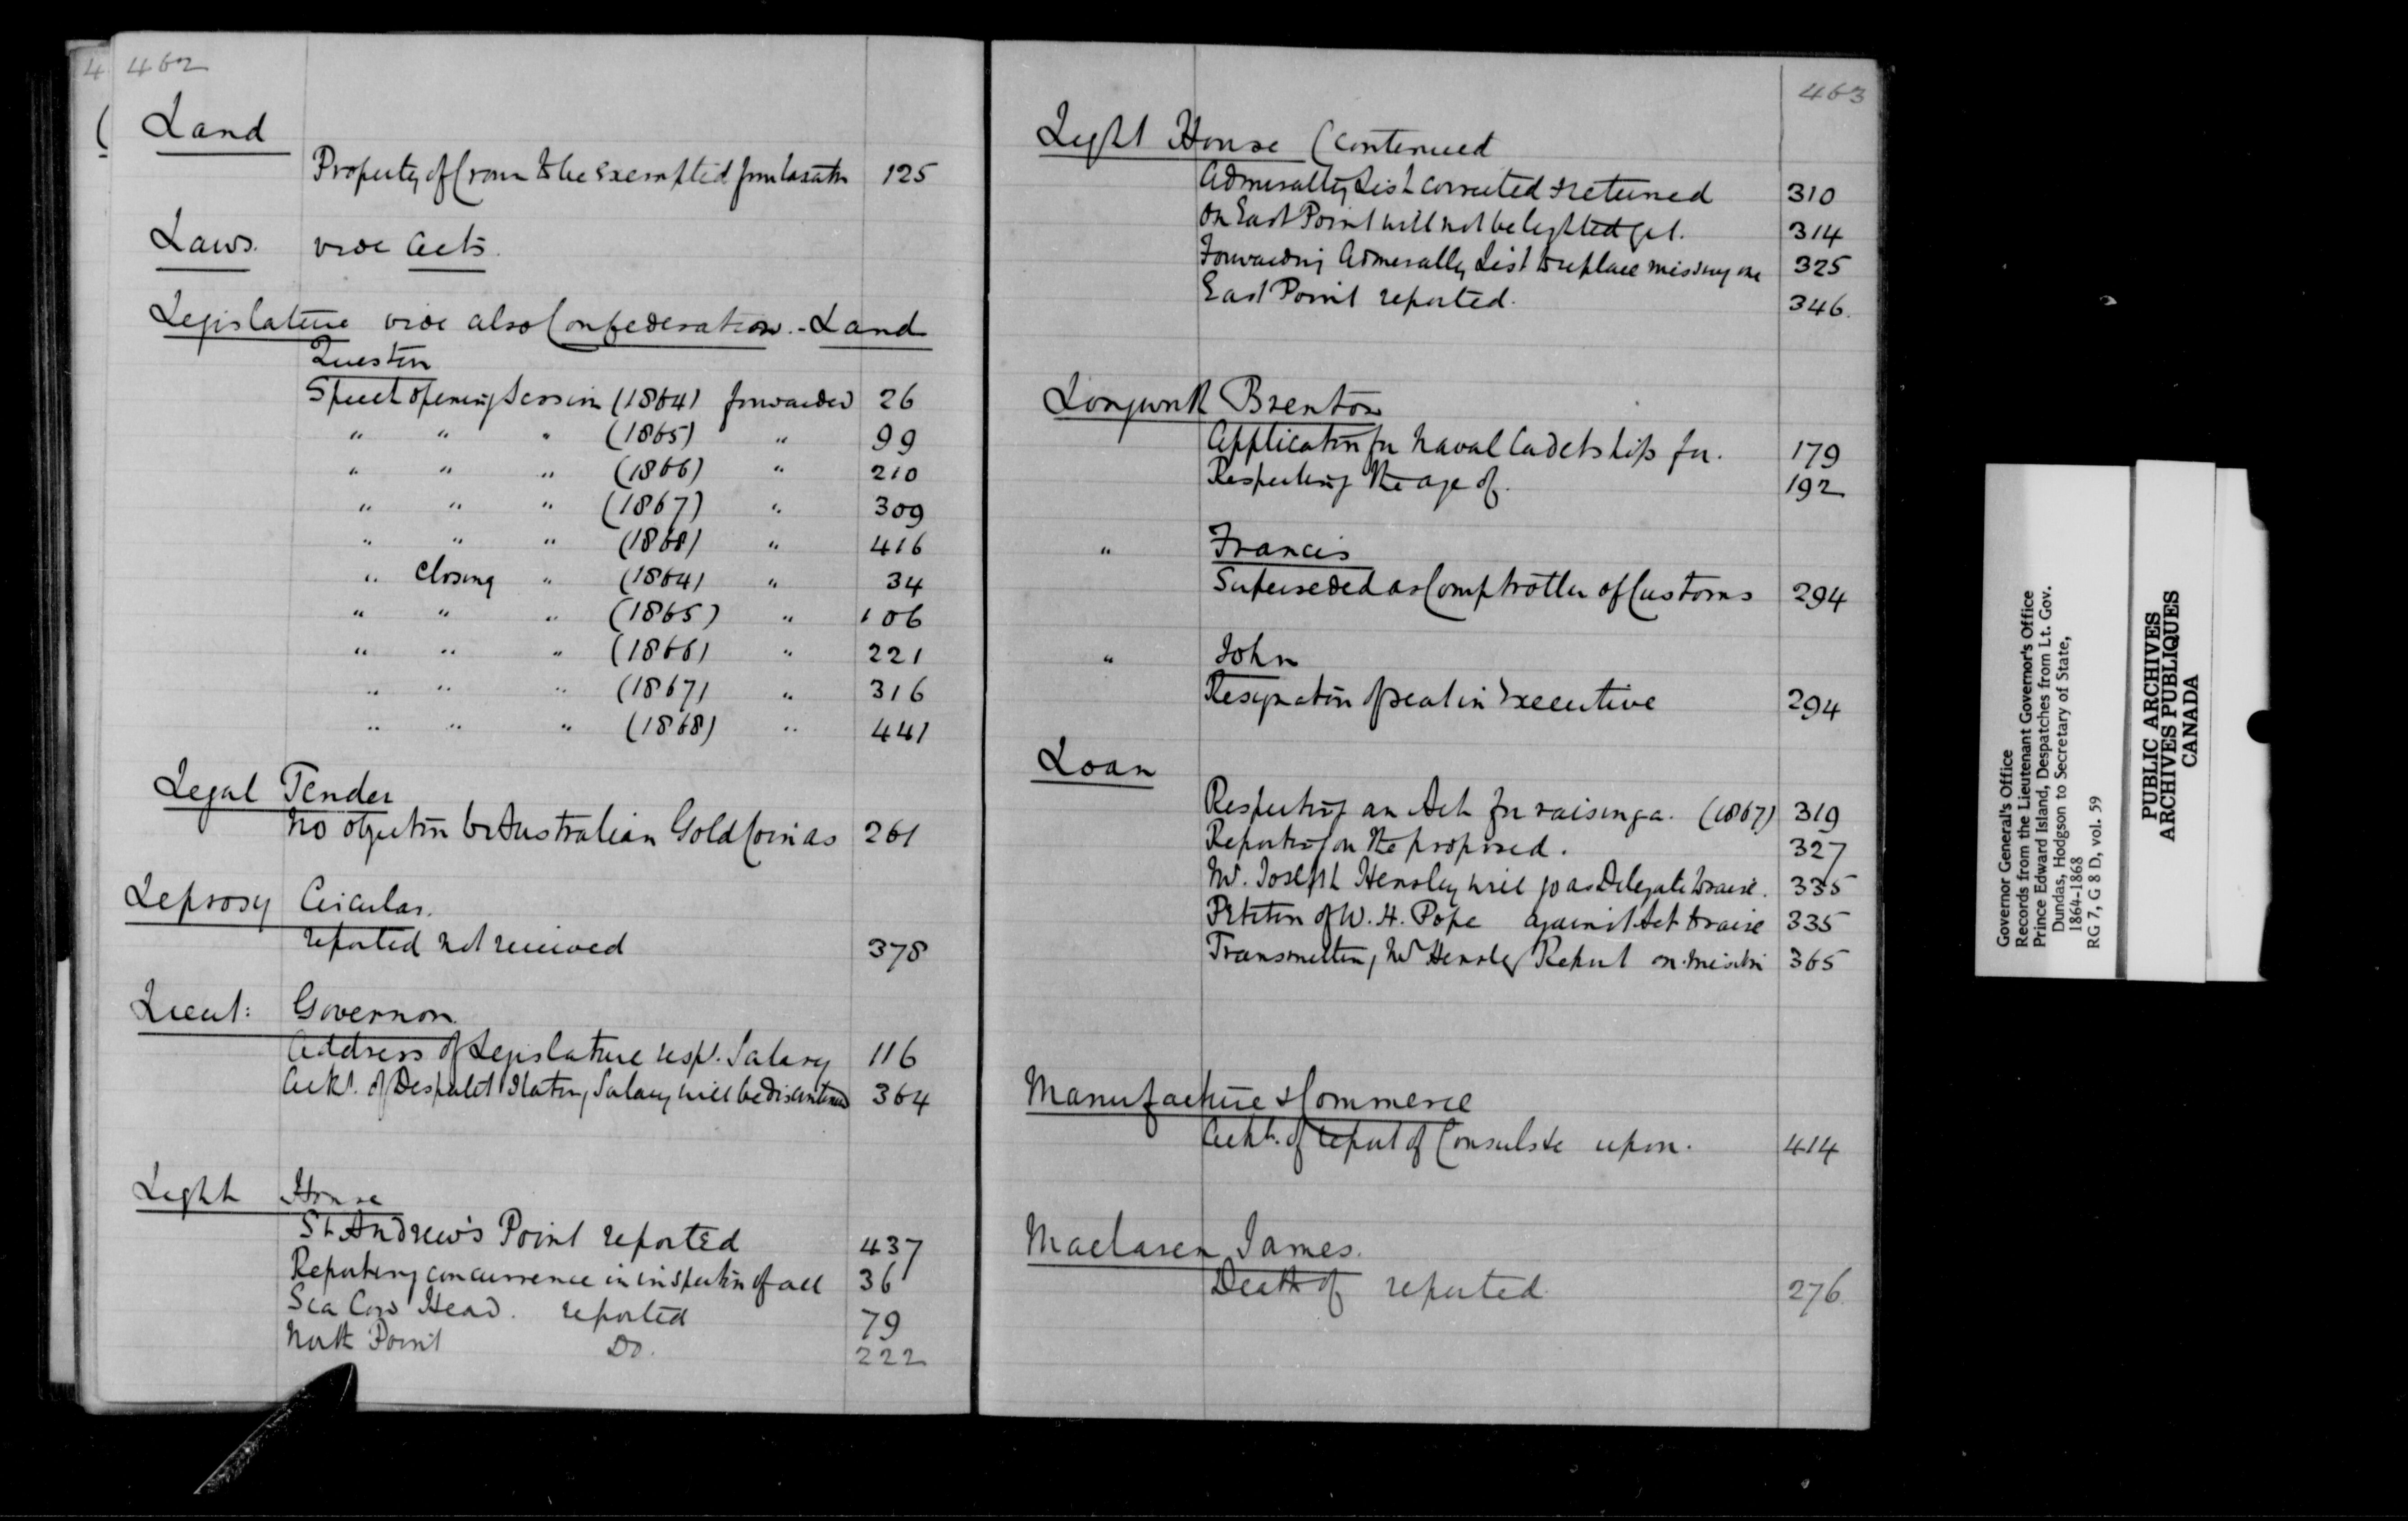 462
Land
Property of Crown to be exempted from taxatn 125
Laws. vide Acts.
Legislature vide also Confederation. - Land
Question
Speech opening Session (1864) forwarded 26
" " " (1865) " 99
" " " (1866) " 210
" " " (1867) " 309
" " " (1868) " 416
" Closing " (1864) " 34
" " " (1865) " 106
" " " (1866) " 221
" " " (1867) " 316
" " " (1868) " 441
Legal Tender
No objection to Australian Gold Coin as 261
Leprosy Circular.
reported not received 378
Lieut: Governor
Address of Legislature resp. Salary 116
Ackt. of Despatch stating Salary will be discontinued 364
Light House
St. Andrew's Point reported 437
Reporting concurrence in inspection of all 36
Sea Cow Head. reported 79
North Point Do. 222
463
Light House (Continued
Admiralty List corrected & returned 310
On East Point will not be lighted yet. 314
Forwarding Admiralty List to replace missing one 325
East Point reported. 346.
Longworth Brenton
Application for Naval Cadetship for. 179
Respecting the age of. 192
" Francis
Superseded as Comptroller of Customs 294
" John
Resignation of seat in Executive 294
Loan
Respecting an Act for raising a. (1867) 319
Reporting on the proposed. 327
Mr. Joseph Hensley will go as Delegate to raise. 335
Petition of W. H. Pope against Act to raise 335
Transmitting Mr Hensley Report on mission 365
Manufacture & Commerce
Ackt. of report of Consuls &c upon. 414
Maclaren James.
Death of reported 276.
Governor General's Office
Records from the Lieutenant Governor's Office
Prince Edward Island, Despatches from Lt. Gov.
Dundas, Hodgson to Secretary of State,
1864-1868
RG 7, G 8 D, vol. 59
PUBLIC ARCHIVES
ARCHIVES PUBLIQUES
CANADA